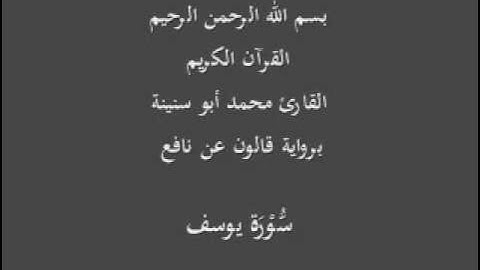 بسم الله الرحمن الرحيم
القرآن الكريم
القارئ محمد أبو سنينة
برواية قالون عن نافع
سُّوْرَة يوسف